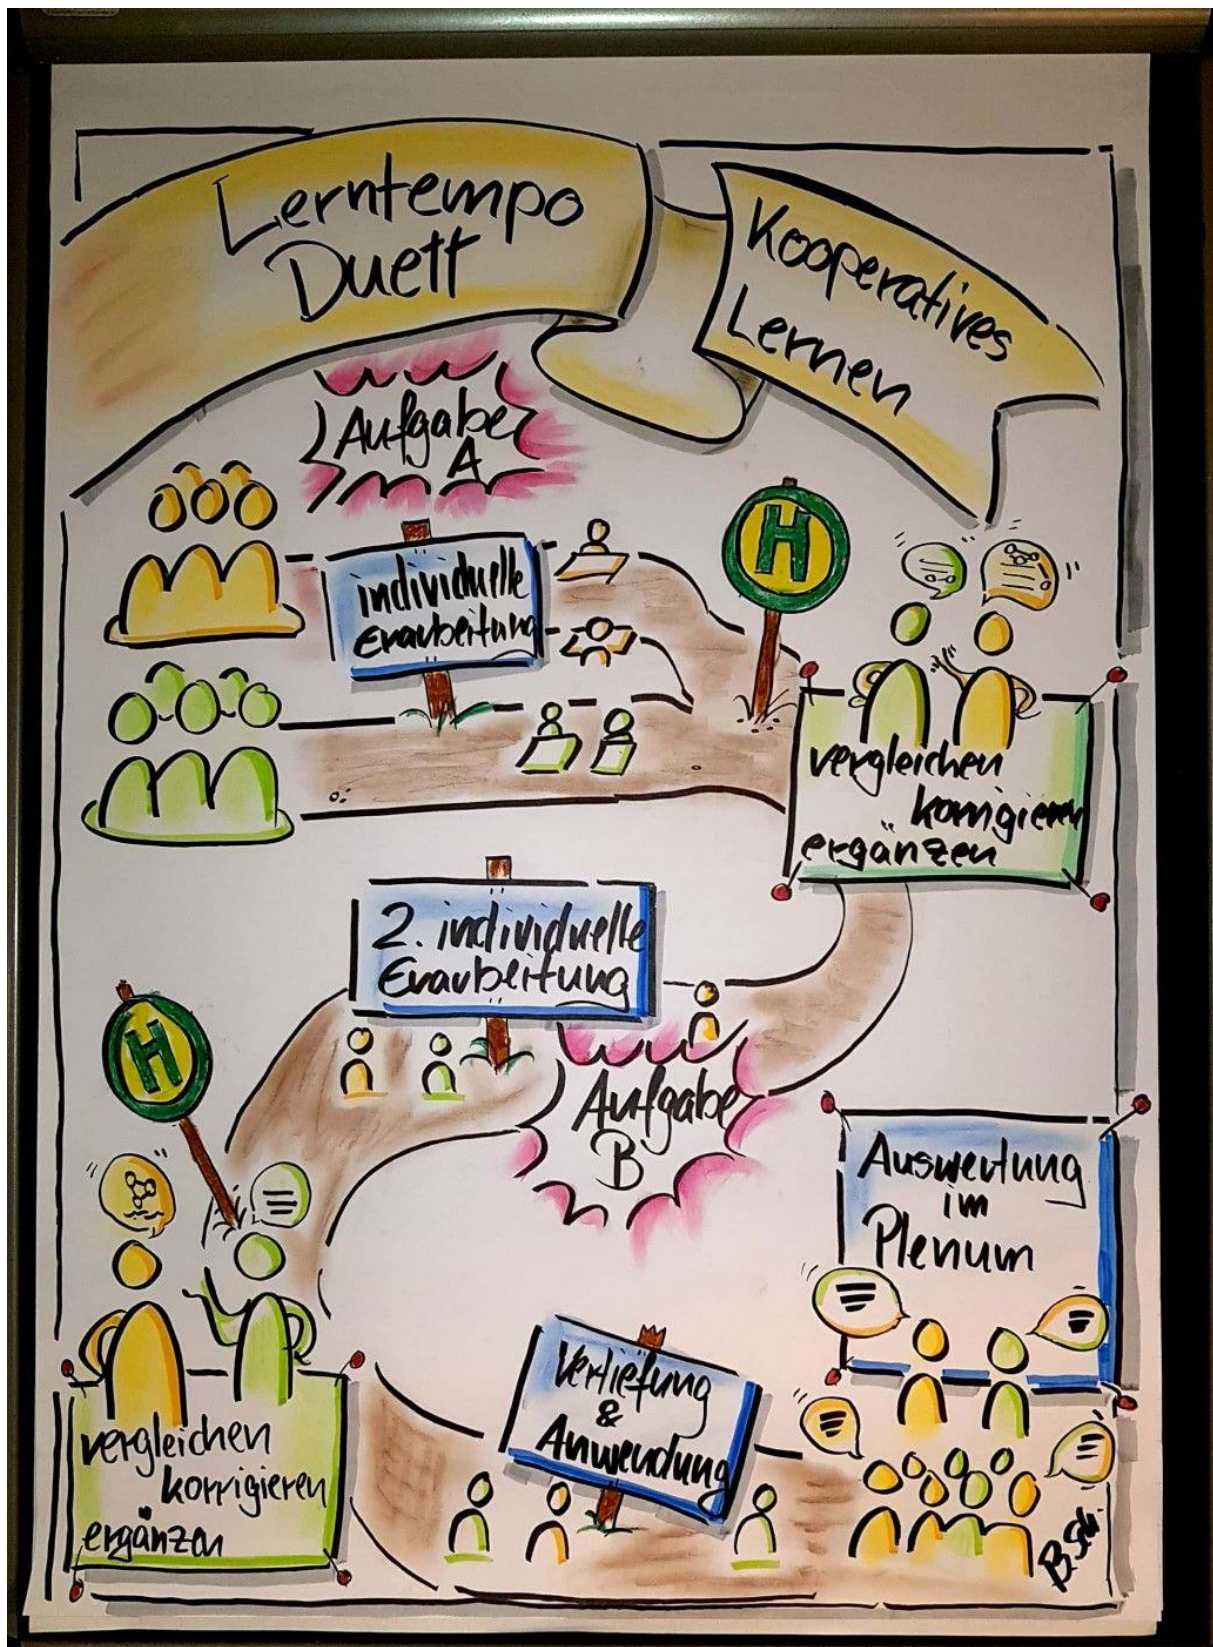 Lerntempo
Duett
Kooperatives
Lernen
Aufgabe
A
individuelle
Erarbeitung
H
vergleichen
korrigieren
ergänzen
2. individuelle
Erarbeitung
H
Aufgabe
B
vergleichen
korrigieren
ergänzen
Vertiefung
&
Anwendung
Auswertung
im
Plenum
B.Sch.